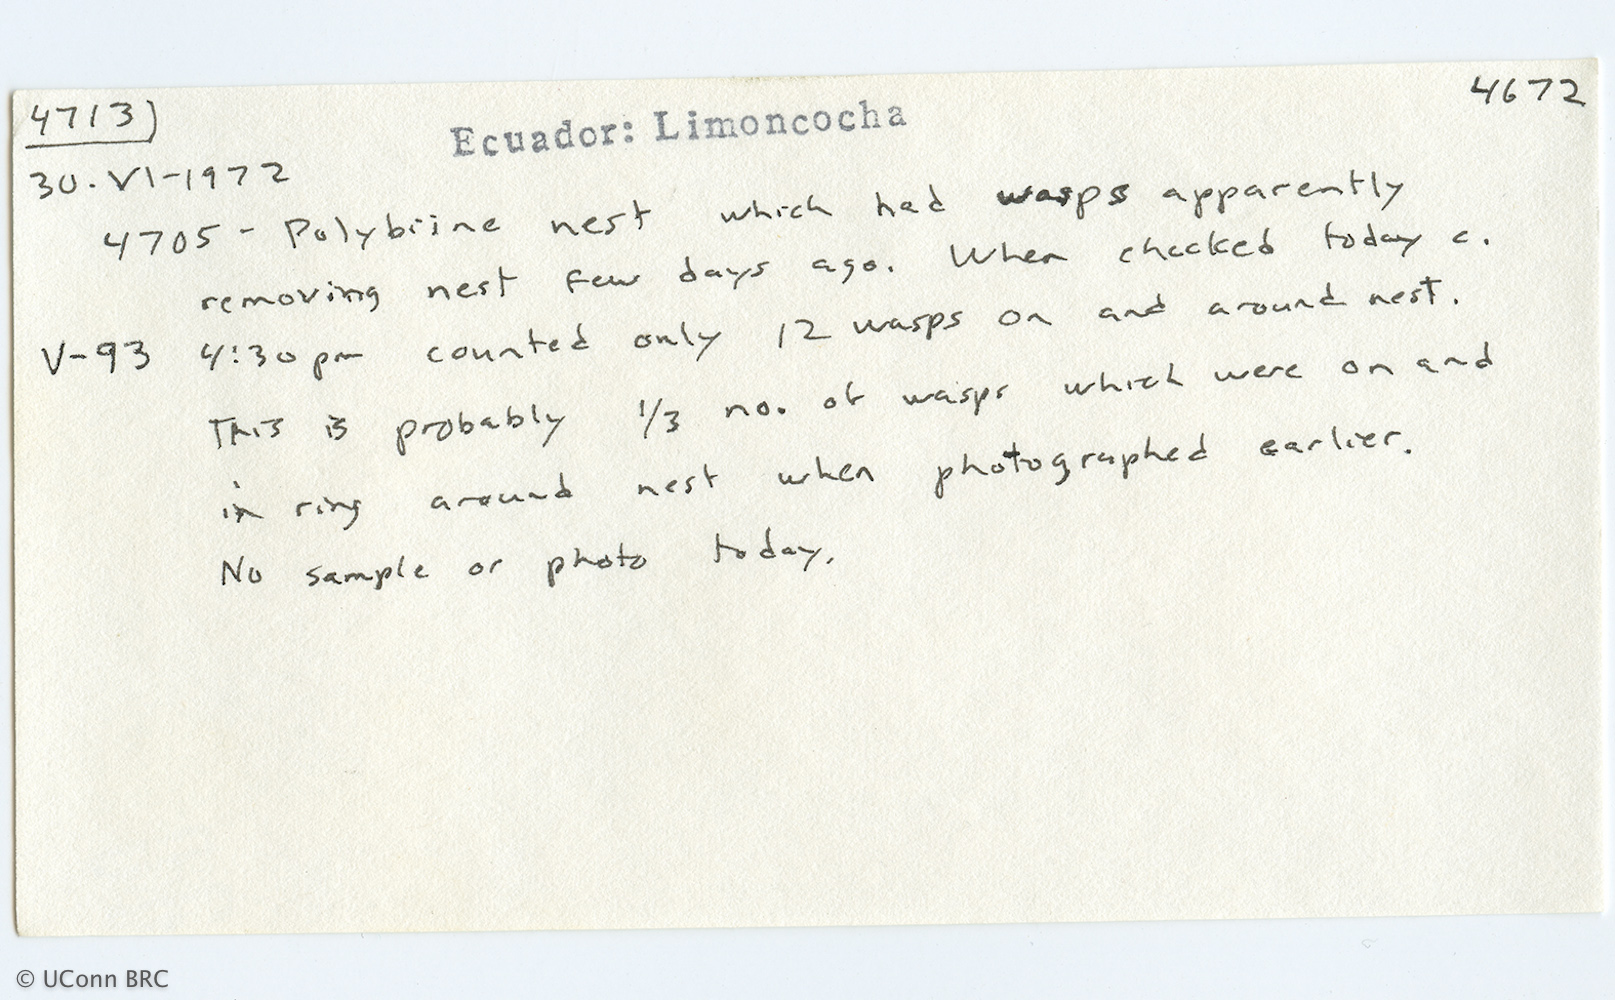 4713) Ecuador: Limoncocha 4672
30-VI-1972
4705 - Polybiine nest which had wasps apparently
removing nest few days ago. When checked today c.
V-93 4:30 pm counted only 12 wasps on and around nest.
This is probably 1/3 no. of wasps which were on and
in ring around nest when photographed earlier.
No sample or photo today.
© UConn BRC